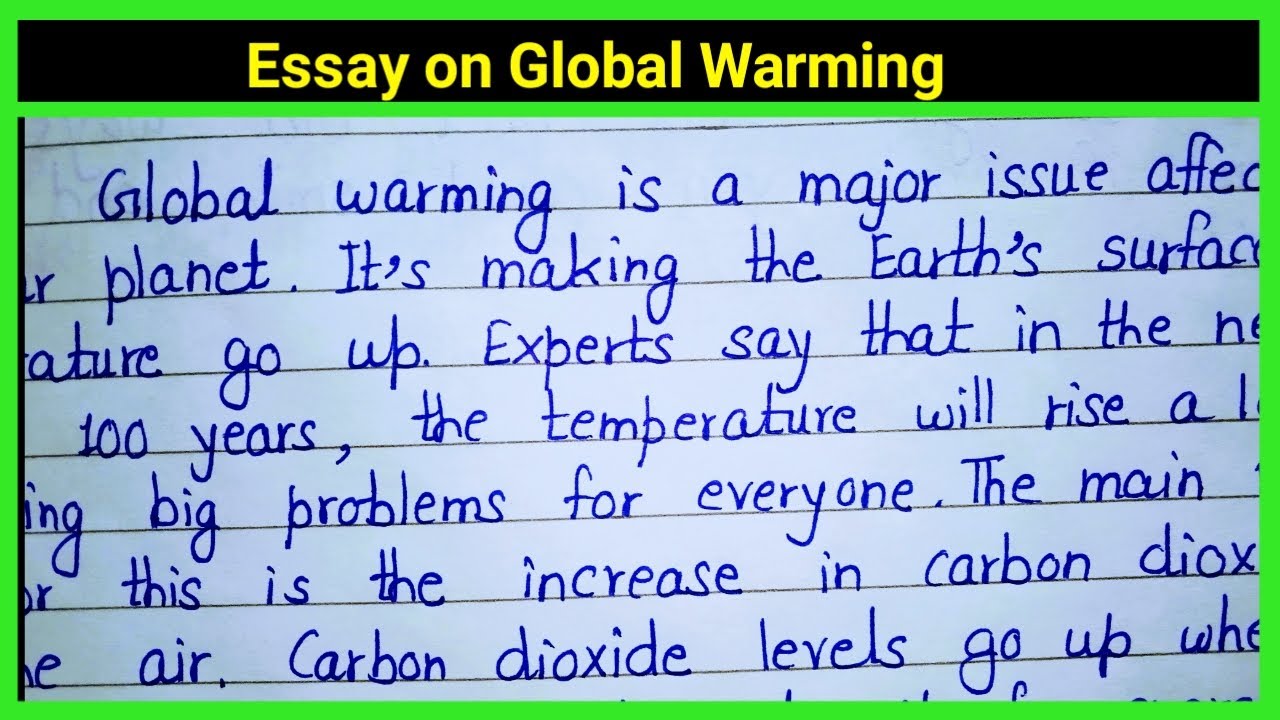 Essay on Global Warming
Global warming is a major issue affec
r planet. It's making the Earth's surfac
ature go up. Experts say that in the ne
100 years, the temperature will rise a l
ing big problems for everyone. The main
or this is the increase in carbon diox
he air. Carbon dioxide levels go up whe